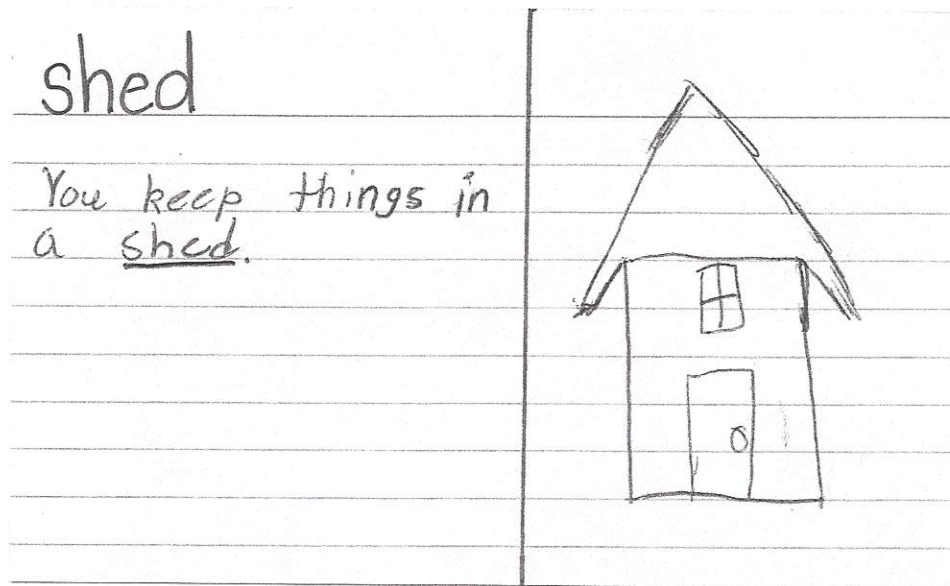 shed
You keep things in
a shed.